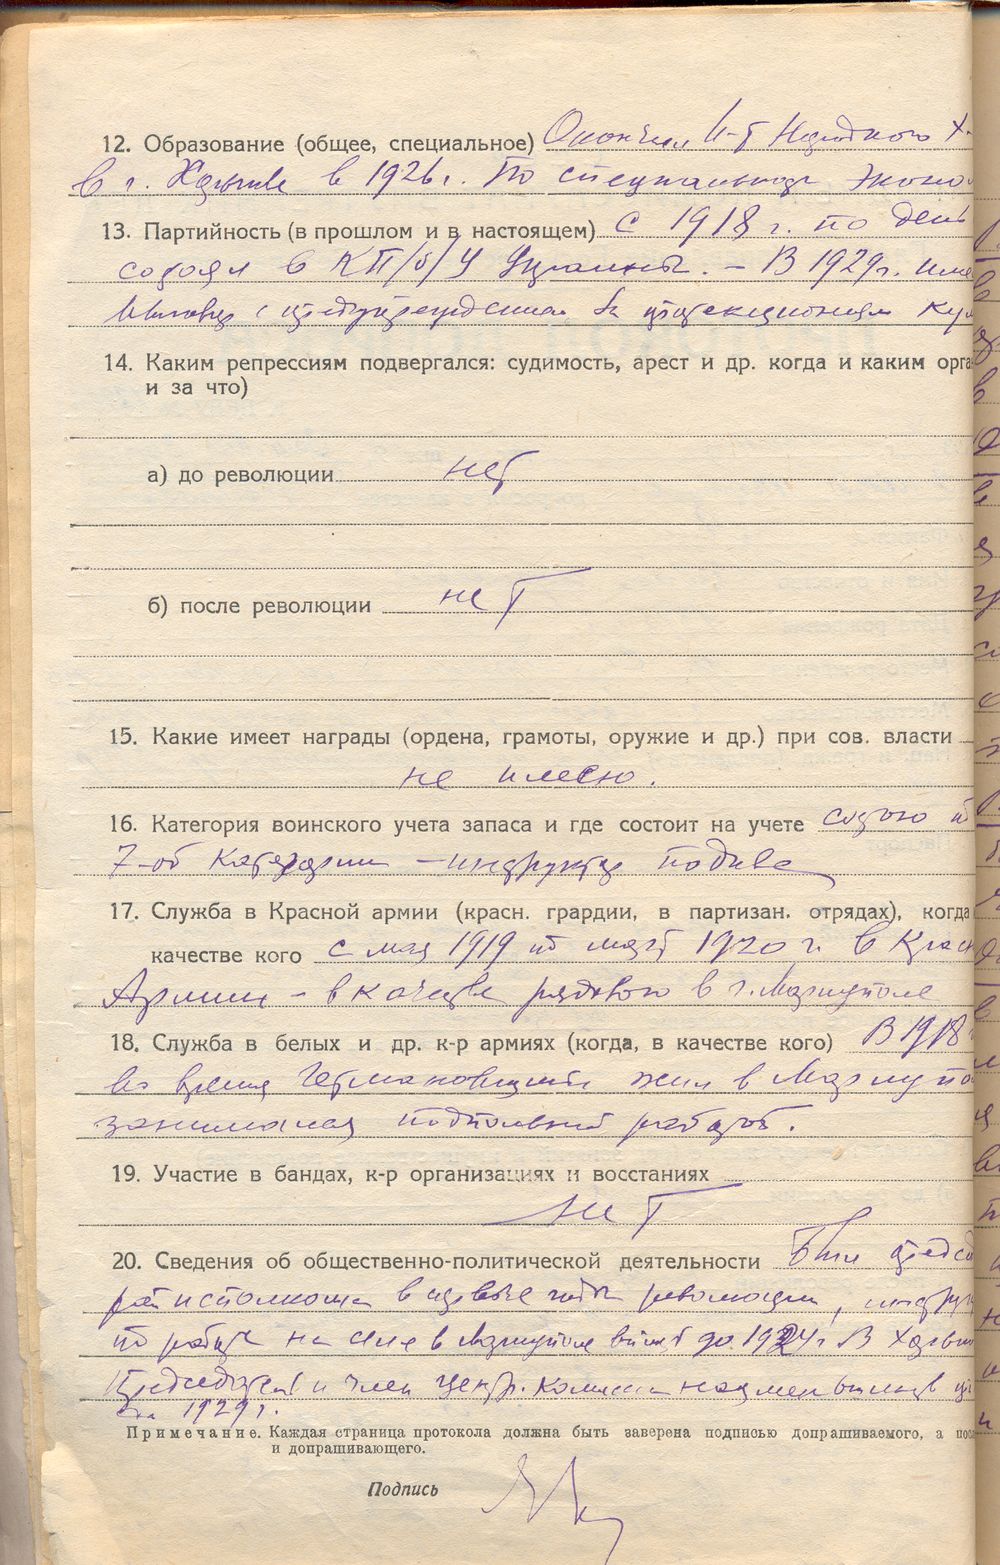 12. Образование (общее, специальное) Окончил И-т Народного Х-
в г. Харькове в 1926 г. По специальности эконо
13. Партийность (в прошлом и в настоящем) с 1918 г. по день
состоял в КП/б/У Украины. – В 1929 г. име
выговор с предупреждением за
14. Каким репрессиям подвергался: судимость, арест и др. когда и каким орга
и за что)
а) до революции нет
б) после революции нет
15. Какие имеет награды (ордена, грамоты, оружие и др.) при сов. власти
не имею.
16. Категория воинского учета запаса и где состоит на учете состою по
7-ой категории – инструктор подива
17. Служба в Красной армии (красн. грардии, в партизан. отрядах), когда
качестве кого с мая 1919 по март 1920 г. в Красн
Армии – в качестве рядового в г. Мариуполе
18. Служба в белых и др. к-р армиях (когда, в качестве кого) В 1918
во время Германовщины жил в Мариупо
занимался подпольной работой.
19. Участие в бандах, к-р организациях и восстаниях
нет
20. Сведения об общественно-политической деятельности Был предсе
райисполкома в первые годы революции, инструк
по работе на селе в Мариуполе вплоть до 1924 г. В Харько
Председатель и член Центр. Комиссии нацменьшинств
1929 г.
Примечание. Каждая страница протокола должна быть заверена подписью допрашиваемого, а пос
и допрашивающего.
Подпись